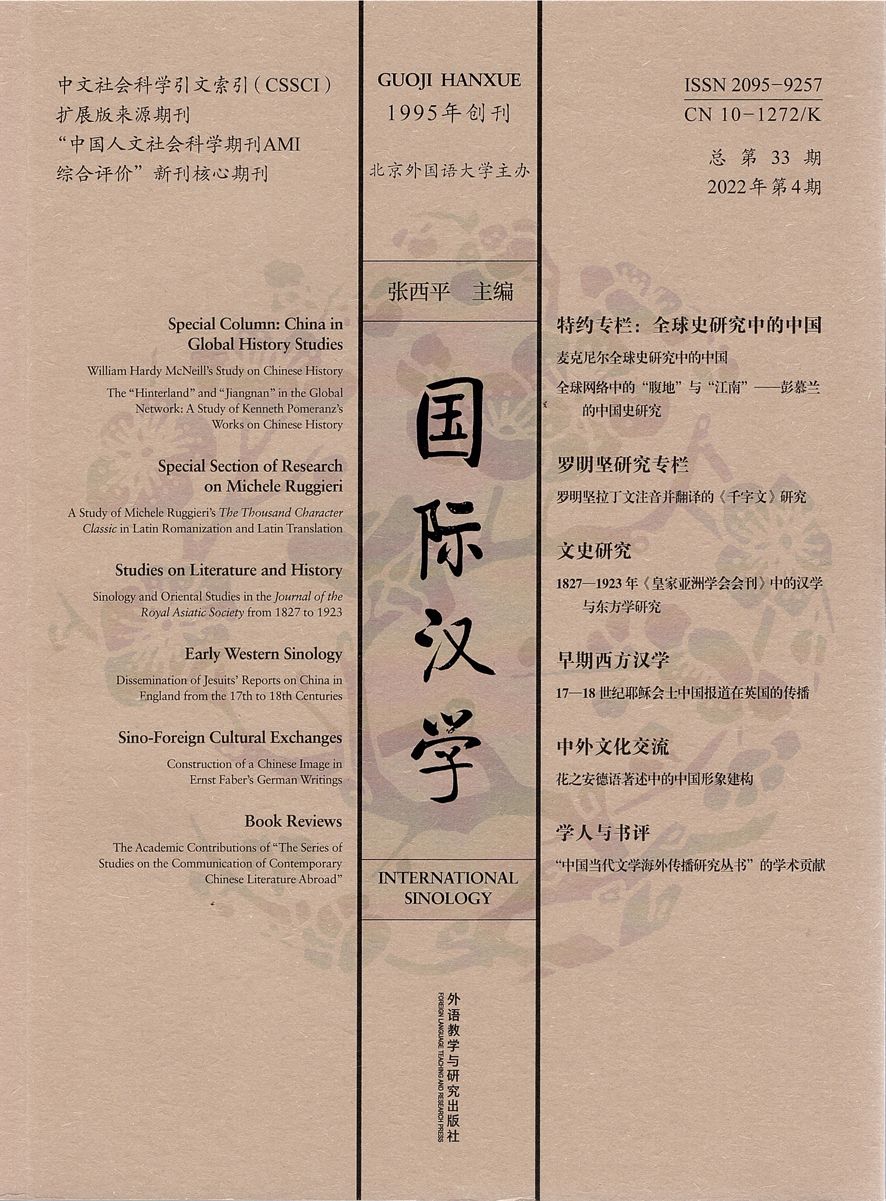 中文社会科学引文索引(CSSCI)
扩展版来源期刊
“中国人文社会科学期刊AMI
综合评价”新刊核心期刊
GUOJI HANXUE
1995年创刊
北京外国语大学主办
ISSN 2095-9257
CN 10-1272/K
总 第 33 期
2022年第4期
张西平 主编
国际汉学
INTERNATIONAL
SINOLOGY
外语教学与研究出版社
FOREIGN LANGUAGE TEACHING AND RESEARCH PRESS
Special Column: China in
Global History Studies
William Hardy McNeill’s Study on Chinese History
The “Hinterland” and “Jiangnan” in the Global
Network: A Study of Kenneth Pomeranz’s
Works on Chinese History
Special Section of Research
on Michele Ruggieri
A Study of Michele Ruggieri’s The Thousand Character
Classic in Latin Romanization and Latin Translation
Studies on Literature and History
Sinology and Oriental Studies in the Journal of the
Royal Asiatic Society from 1827 to 1923
Early Western Sinology
Dissemination of Jesuits’ Reports on China in
England from the 17th to 18th Centuries
Sino-Foreign Cultural Exchanges
Construction of a Chinese Image in
Ernst Faber’s German Writings
Book Reviews
The Academic Contributions of “The Series of
Studies on the Communication of Contemporary
Chinese Literature Abroad”
特约专栏：全球史研究中的中国
麦克尼尔全球史研究中的中国
全球网络中的“腹地”与“江南”——彭慕兰
的中国史研究
罗明坚研究专栏
罗明坚拉丁文注音并翻译的《千字文》研究
文史研究
1827—1923 年《皇家亚洲学会会刊》中的汉学
与东方学研究
早期西方汉学
17—18 世纪耶稣会士中国报道在英国的传播
中外文化交流
花之安德语著述中的中国形象建构
学人与书评
“中国当代文学海外传播研究丛书”的学术贡献